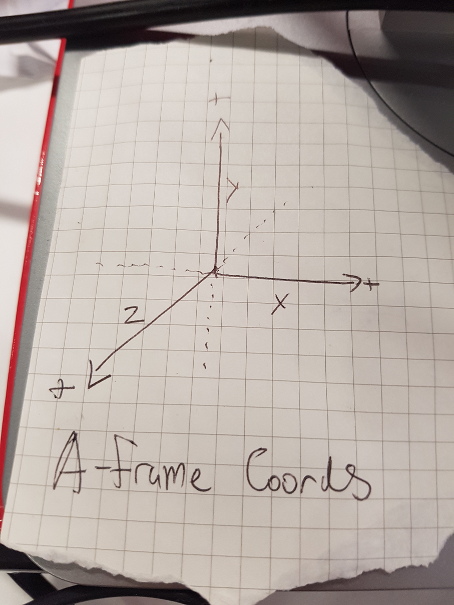 +
Y
+
X
Z
+
A-frame Coords